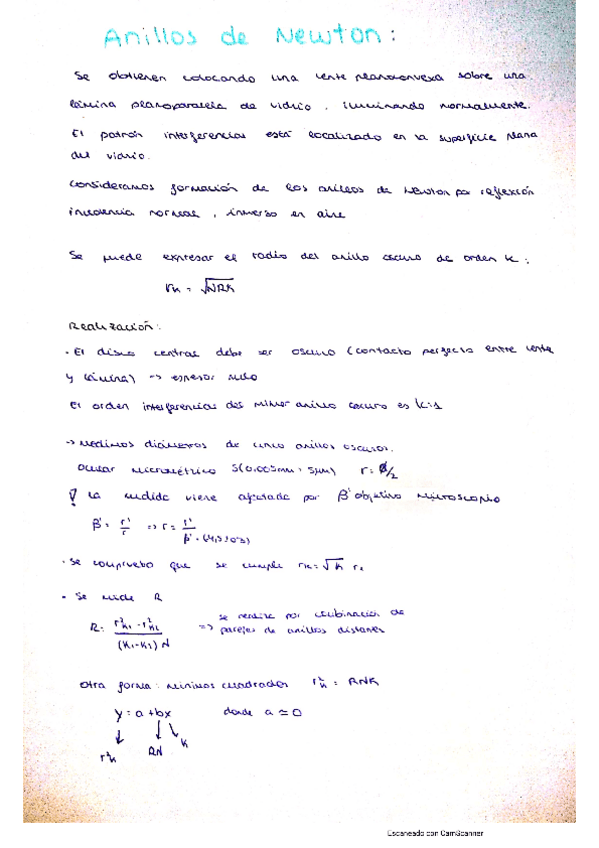 Anillos de Newton:
Se obtienen colocando una lente planoconvexa sobre una
lámina planoparalela de vidrio, iluminando normalmente.
El patrón interferencias está localizado en la superficie plana
del vidrio.
Consideramos formación de los anillos de Newton por reflexión
incidencia normal, inmerso en aire
Se puede expresar el radio del anillo oscuro de orden K:
rk = √λRk
Realización:
· El disco central debe ser oscuro (contacto perfecto entre lente
y lámina) => espesor nulo
El orden interferencias del primer anillo oscuro es K=1
-> Medimos diámetros de cinco anillos oscuros.
Ocular micrométrico S(0.005mm = 5μm) r = Ø/2
! La medida viene afectada por β' objetivo microscopio
β' = r'/r => r = r'/β'
· Se comprueba que se cumple rk = √k r1
· Se mide R
R = r²k1 - r²k2 / (K1-K2) λ => se realiza por combinación de
parejas de anillos distantes
Otra forma: mínimos cuadrados r²k = Rλk
y = a + bx donde a ≃ 0
r²k Rλ k
Escaneado con CamScanner